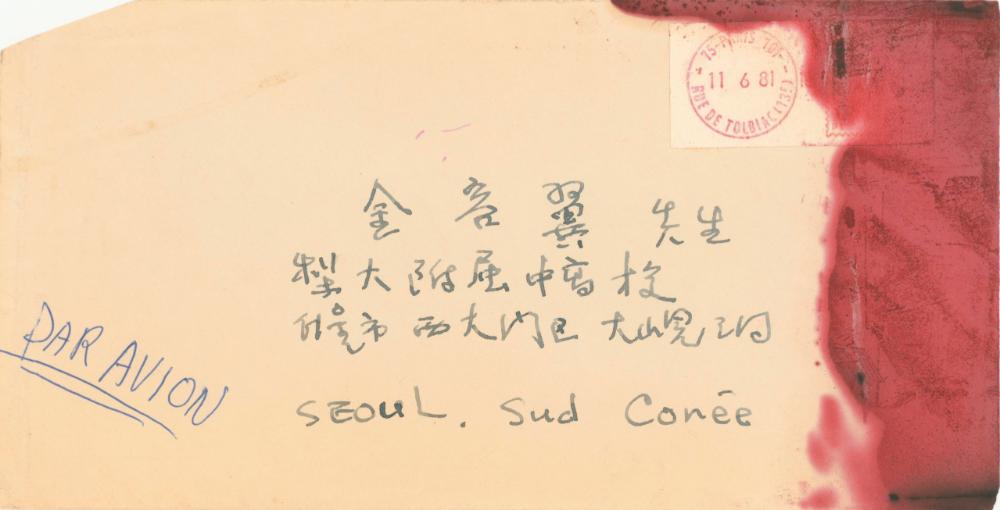 75-PARIS TOP
11 6 81
RUE DE TOLBIAC (13E)
金 容 翼 先生
梨大附屬中高校
서울市 西大門区 大峴洞
PAR AVION
SEOUL. Sud Conée